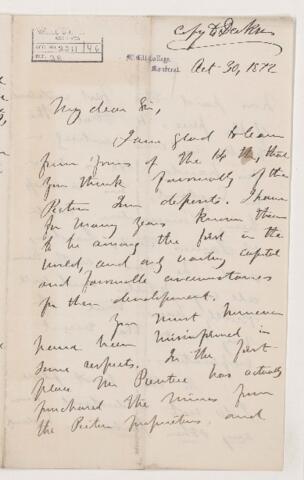 copy to
McGill College,
Montreal.
Oct. 30, 1872
My dear Sir,
I am glad to learn
from yours of the 14th, that
you think favourably of the
Pictou Iron deposits. I have
for many years known them
to be among the first in the
world, and only wanting capital
and favourable circumstances
for their development.
You must however
have been misinformed in
some respects. In the first
place Mr has actually
purchased the mines from
the Pictou proprietors and